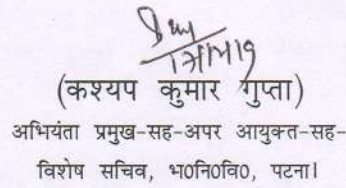 (कश्यप कुमार गुप्ता)
अभियंता प्रमुख-सह-अपर आयुक्त-सह-
विशेष सचिव, भ०नि०वि०, पटना।